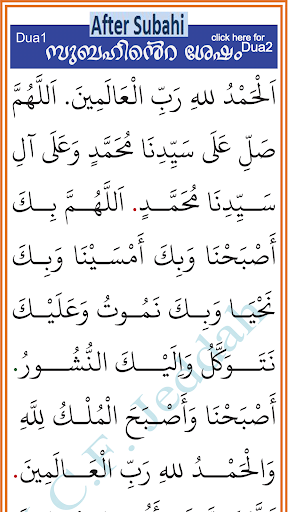 After Subahi
Dua1
click here for
സുബഹിൻെറ ശേഷം
Dua2
اَلْحَمْدُ لِلهِ رَبِّ الْعَالَمِينَ. اَللَّهُمَّ
صَلِّ عَلَى سَيِّدِنَا مُحَمَّدٍ وَعَلَى آلِ
سَـيِّدِنَا مُحَمَّـدٍ. اَللَّهُـمَّ بِـكَ
أَصْبَحْنَا وَبِكَ أَمْسَيْنَا وَبِـكَ
نَحْيَـا وَبِـكَ نَمُوتُ وَعَلَيْـكَ
نَتَـوَكَّلُ وَإِلَيْـكَ النُّشُـورُ.
أَصْبَحْنَا وَأَصْبَحَ الْمُلْـكُ لِلَّهِ
وَالْحَمْـدُ لِلهِ رَبِّ الْعَـالَمِينَ.
C.F. Jeddah